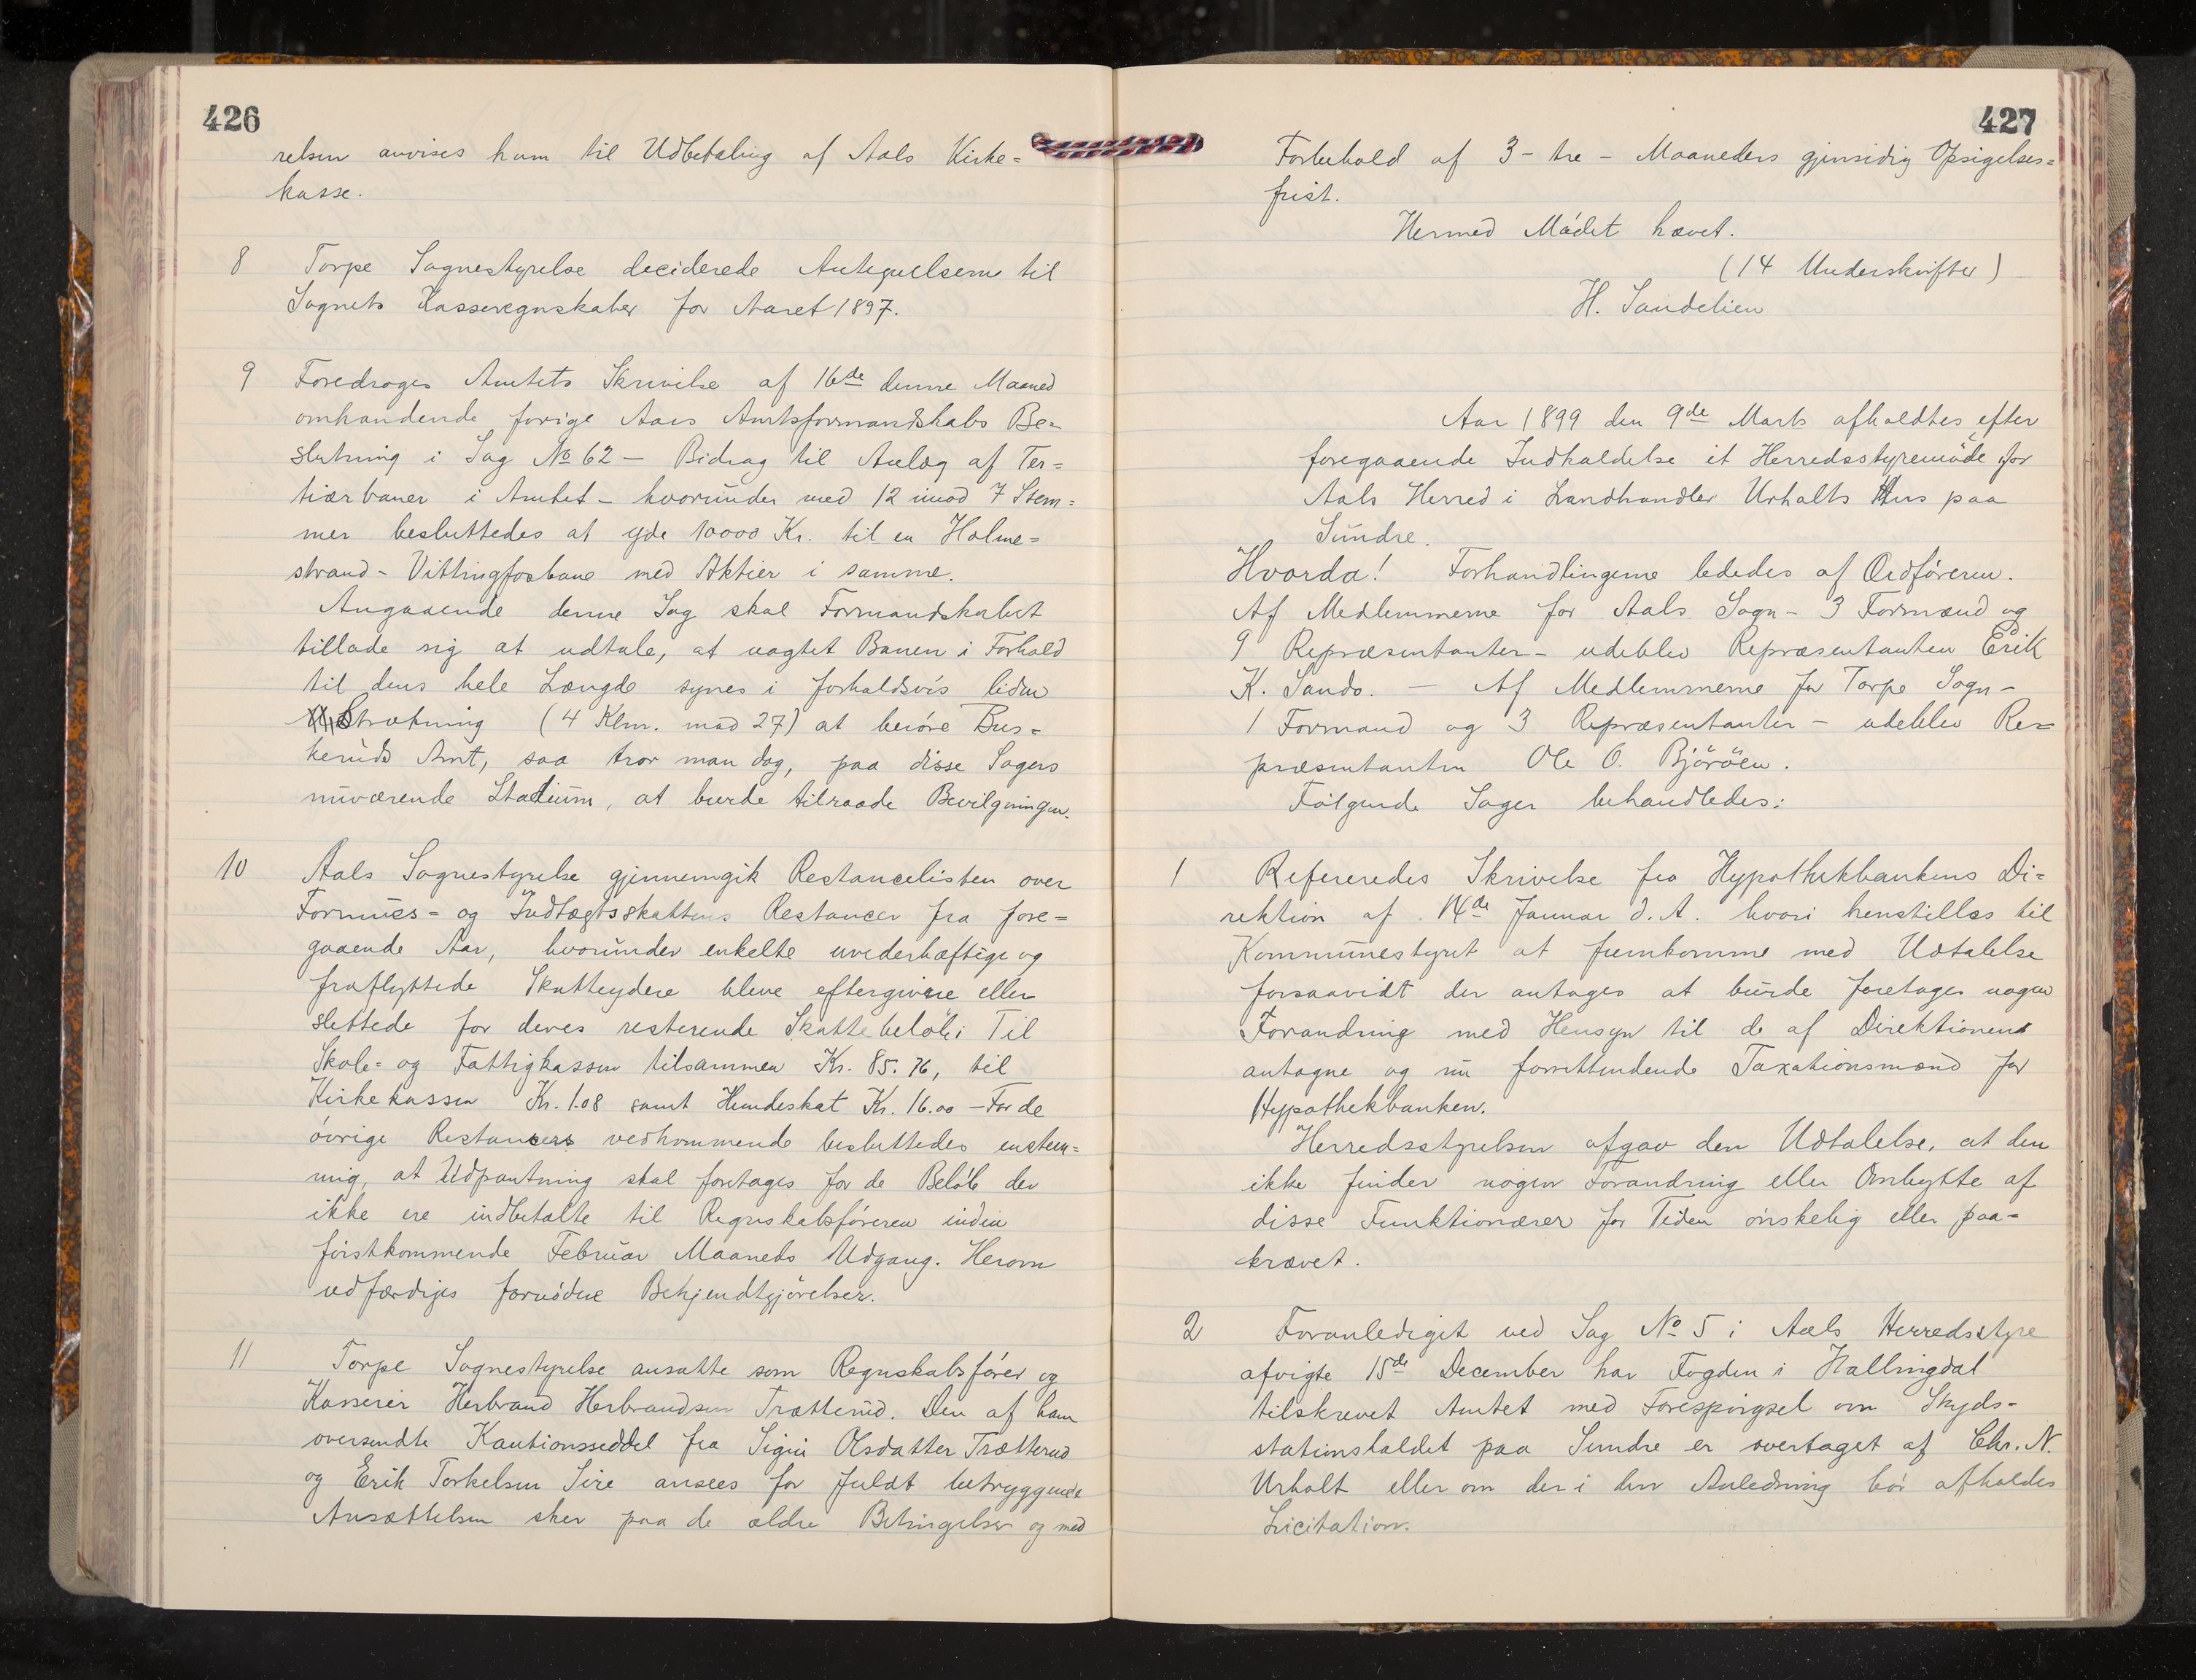 426
relsen anvises ham til Udbetaling af Aals Kirke=
kasse.
8 Torpe Sognestyrelse deciderede Antegnelserne til
Sognets Kasseregnskaber for Aaret 1897.
9 Foredroges Amtets Skrivelse af 16de denne Maaned
omhandende forige Aars Amtsformandskabs Be=
slutning i Sag No 62 — Bidrag til Anlæg af Ter=
tiærbaner i Amtet — hvorunder med 12 imod 7 Stem=
mer besluttedes at yde 10000 Kr. til en Holme=
strand - Vittingfosbane med Aktier i samme.
Angaaende denne Sag skal Formandskabet
tillade sig at udtale, at uagtet Banen i Forhold
til dens hele Længde synes i forholdsvis liden
Strækning (4 Klm. mod 27) at berøre Bus=
keruds Amt, saa tror man dog, paa disse Sagers
nuværende Stadium, at burde tilraade Bevilgningen.
10 Aals Sognestyrelse gjennemgik Restancelisten over
Formues= og Indtægtsskattens Restancer fra fore=
gaaende Aar, hvorunder enkelte uvederhæftige og
fraflyttede Skatteydere bleve eftergivne eller
slettede for deres resterende Skattebeløb: Til
Skole= og Fattigkassen tilsammen Kr. 85.76, til
Kirkekassen Kr. 1.08 samt Hundeskat Kr. 16.00 — For de
øvrige Restancers vedkommende besluttedes enstem=
mig, at Udpantning skal foretages for de Beløb der
ikke ere indbetalte til Regnskabsføreren inden
førstkommende Februar Maaneds Udgang. Herom
udfærdiges fornødne Bekjendtgjørelser.
11 Torpe Sognestyrelse ansatte som Regnskabsfører og
Kasserer Herbrand Herbrandsen Trætterud. Den af ham
oversendte Kautionsseddel fra Sigri Olsdatter Trætterud
og Erik Torkelsen Sire ansees for fuldt betryggende
Ansættelsen sker paa de ældre Betingelser og med
427
Forbehold af 3 - tre - Maaneders gjensidig Opsigelses=
frist.
Hermed Mødet hævet.
(14 Underskrifter)
H. Sandelien
Aar 1899 den 9de Marts afholdtes efter
foregaaende Indkaldelse et Herredsstyremøde for
Aals Herred i Landhandler Urhalts Hus paa
Sundre.
Hvorda! Forhandlingerne lededes af Ordføreren.
Af Medlemmerne for Aals Sogn - 3 Formænd og
9 Repræsentanter - udeblev Repræsentanten Erik
K. Sando. — Af Medlemmerne for Torpe Sogn -
1 Formand og 3 Repræsentanter - udeblev Re=
præsentanten Ole O. Björöen.
Følgende Sager behandledes:
1 Refereredes Skrivelse fra Hypothekbankens Di=
rektion af 14de Januar d. A. hvori henstilles til
Kommunestyret at fremkomme med Udtalelse
forsaavidt der antages at burde foretages nogen
Forandring med Hensyn til de af Direktionen
antagne og nu forrettendende Taxationsmænd for
Hypothekbanken.
Herredsstyrelsen afgav den Udtalelse, at den
ikke finder nogen Forandring eller Ombytte af
disse Funktionærer for Tiden ønskelig eller paa=
krævet.
2 Foranlediget ved Sag No 5 i Aals Herredsstyre
afvigte 15de December har Fogden i Hallingdal
tilskrevet Amtet med Forespørgsel om Skyds-
stationsholdet paa Sundre er overtaget af Chr. N.
Urhalt eller om der i den Anledning bør afholdes
Licitation.